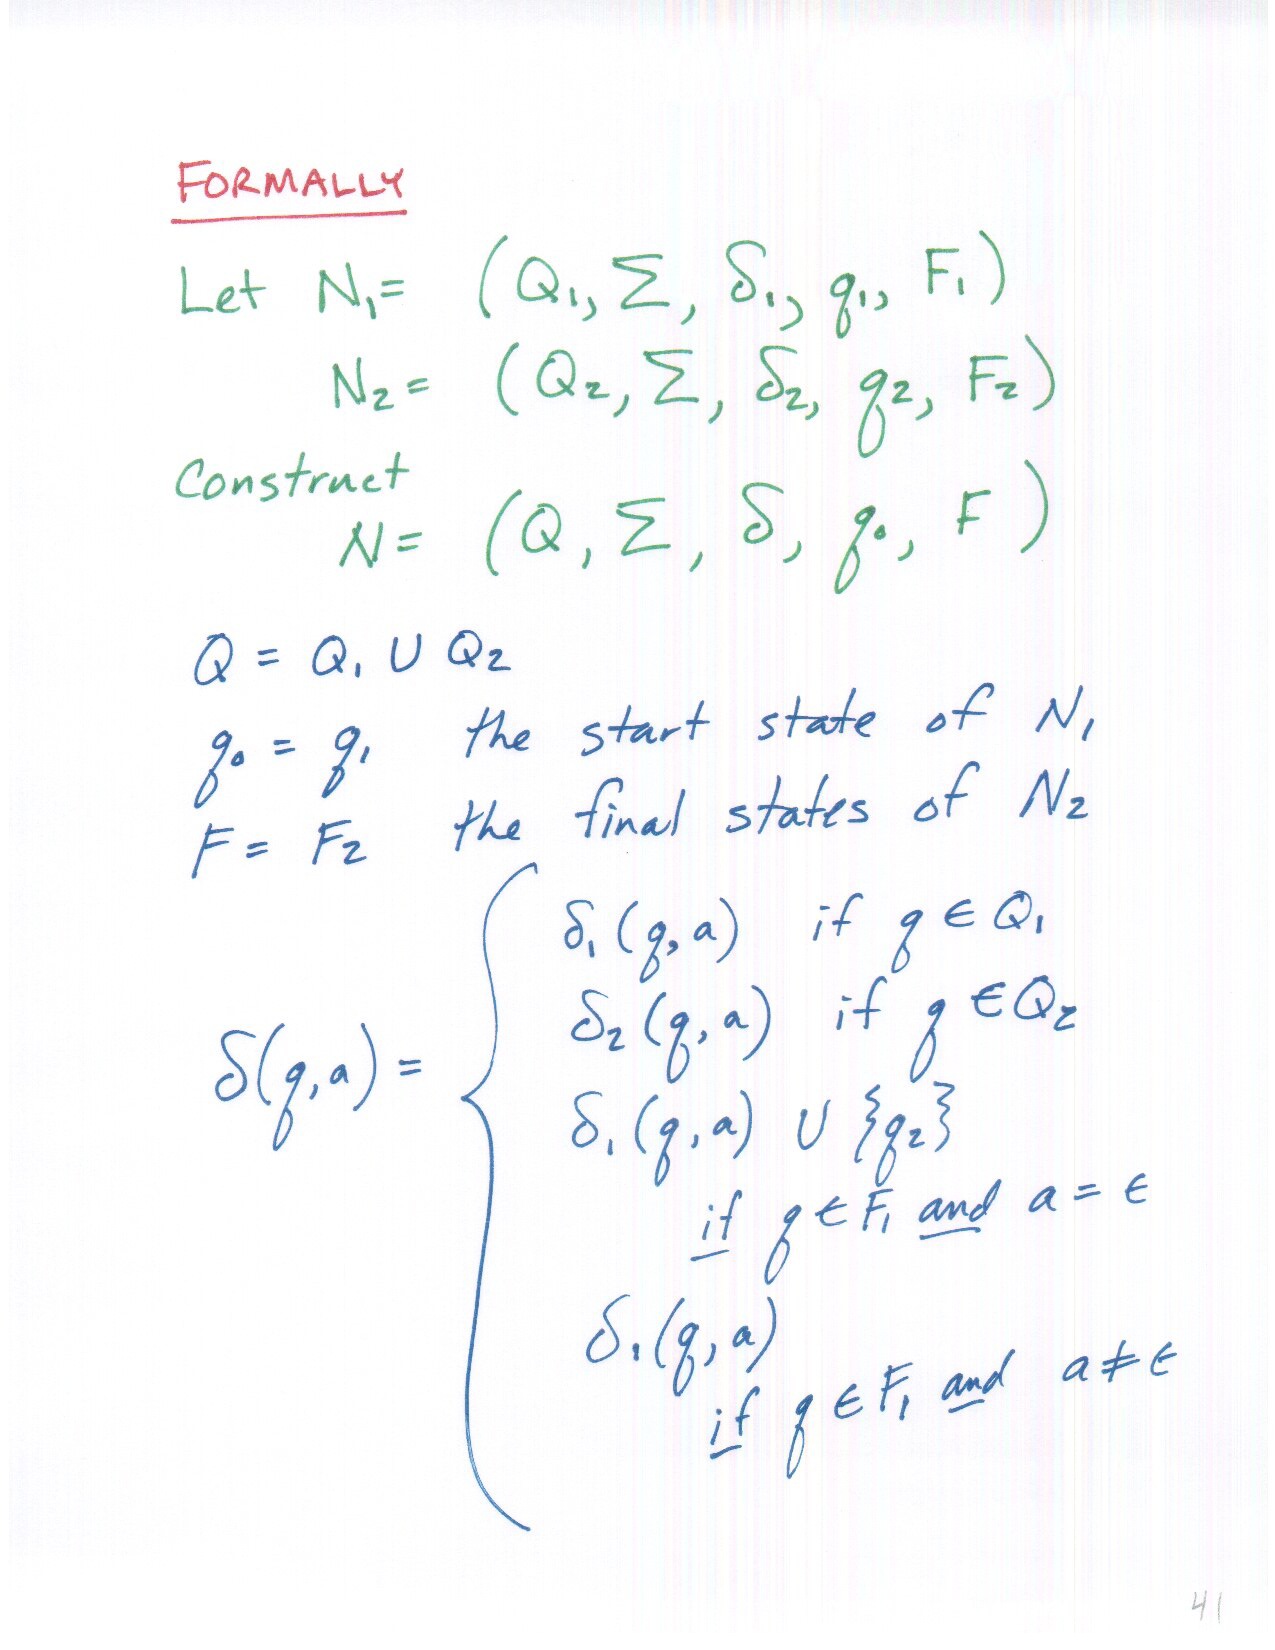 FORMALLY
Let N₁= (Q₁, Σ, δ₁, q₁, F₁)
N₂= (Q₂, Σ, δ₂, q₂, F₂)
Construct
N= (Q, Σ, δ, q₀, F)
Q = Q₁ ∪ Q₂
q₀ = q₁ the start state of N₁
F = F₂ the final states of N₂
δ₁(q,a) if q ∈ Q₁
δ₂(q,a) if q ∈ Q₂
δ(q,a) =
δ₁(q,a) ∪ {q₂}
if q ∈ F₁ and a = ε
δ₁(q,a)
if q ∈ F₁ and a ≠ ε
41